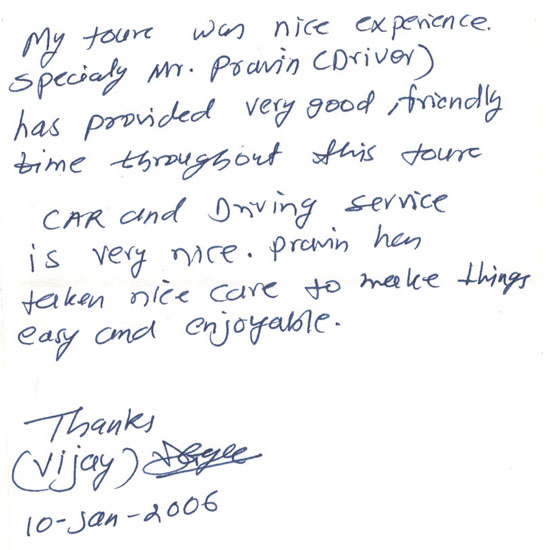 My toure was nice experience.
specialy Mr. Pravin (Driver)
has provided very good, friendly
time throughout this toure
CAR and Driving service
is very nice. Pravin has
taken nice care to make things
easy and enjoyable.
Thanks
(Vijay)
10-Jan-2006